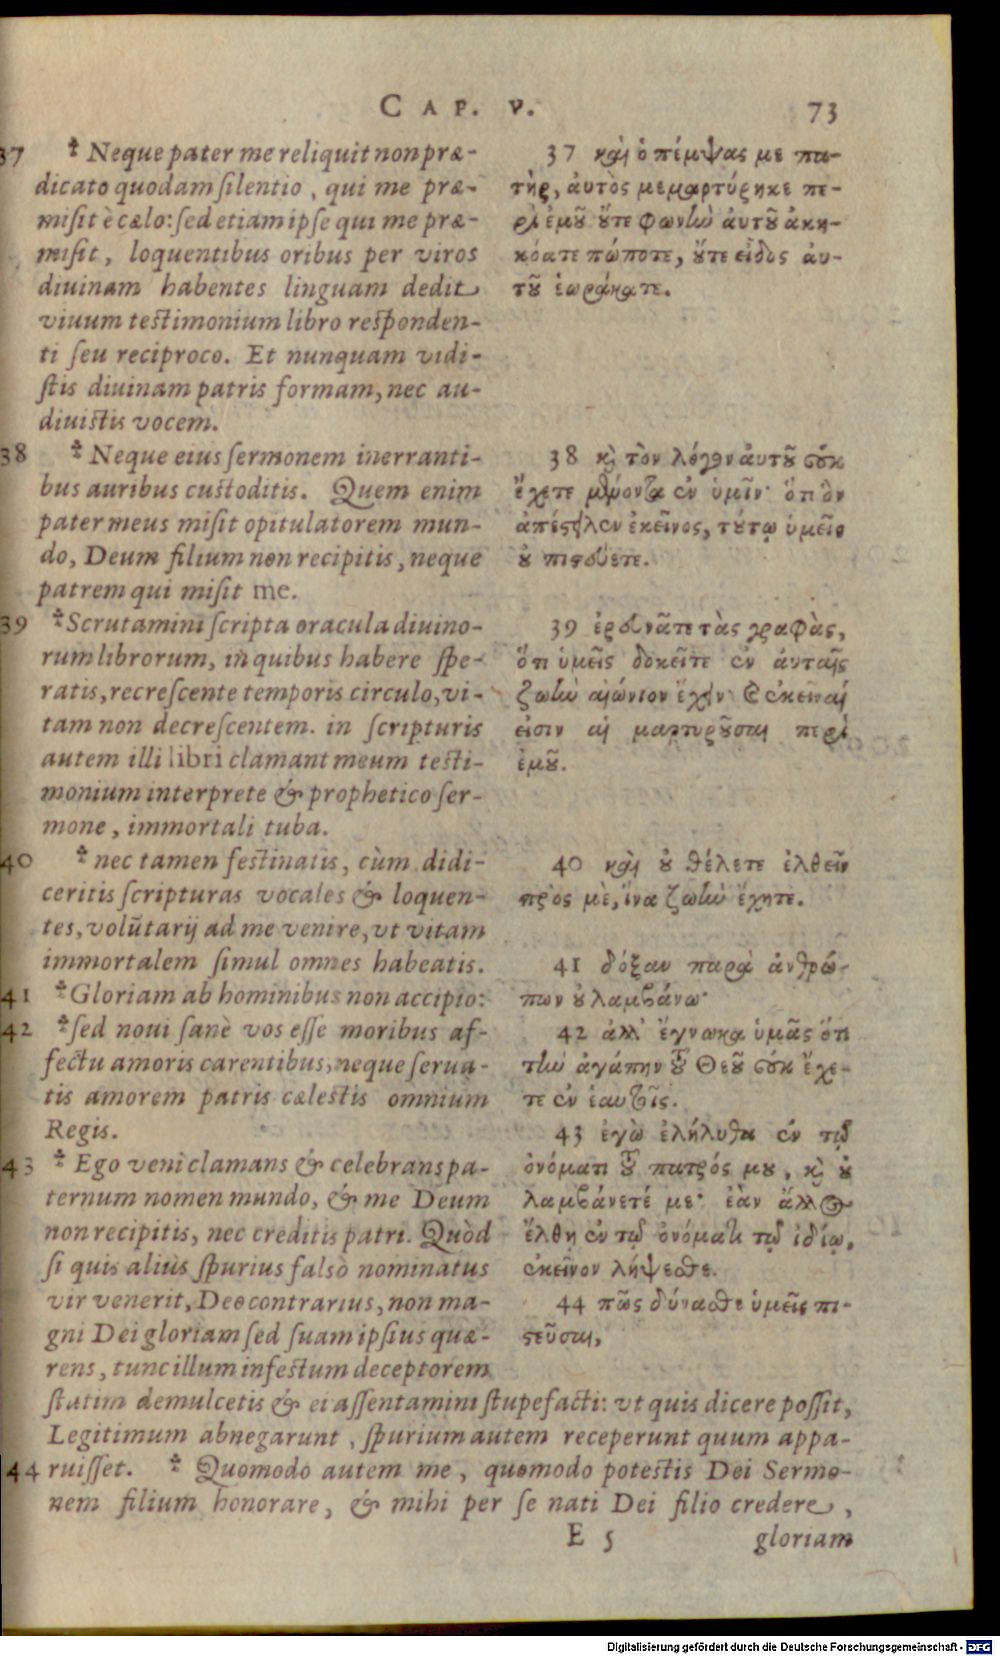 CAP. V. 73
37 * Neque pater me reliquit non præ-
dicato quodam silentio, qui me præ-
misit è cælo: sed etiam ipse qui me præ-
misit, loquentibus oribus per viros
diuinam habentes linguam dedit
viuum testimonium libro responden-
ti seu reciproco. Et nunquam vidi-
stis diuinam patris formam, nec au-
diuistis vocem.
38 * Neque eius sermonem inerranti-
bus auribus custoditis. Quem enim
pater meus misit opitulatorem mun-
do, Deum filium non recipitis, neque
patrem qui misit me.
39 * Scrutamini scripta oracula diuino-
rum librorum, in quibus habere spe-
ratis, recrescente temporis circulo, vi-
tam non decrescentem. in scripturis
autem illi libri clamant meum testi-
monium interprete & prophetico ser-
mone, immortali tuba.
40 * nec tamen festinatis, cùm didi-
ceritis scripturas vocales & loquen-
tes, volūtarij ad me venire, vt vitam
immortalem simul omnes habeatis.
41 * Gloriam ab hominibus non accipio:
42 * sed noui sanè vos esse moribus af-
fectu amoris carentibus, neque serua-
tis amorem patris cælestis omnium
Regis.
43 * Ego veni clamans & celebrans pa-
ternum nomen mundo, & me Deum
non recipitis, nec creditis patri. Quòd
si quis alius spurius falsò nominatus
vir venerit, Deo contrarius, non ma-
gni Dei gloriam sed suam ipsius quæ-
rens, tunc illum infestum deceptorem
statim demulcetis & ei assentamini stupefacti: vt quis dicere possit,
Legitimum abnegarunt, spurium autem receperunt quum appa-
44 ruisset. * Quomodo autem me, quomodo potestis Dei Sermo-
nem filium honorare, & mihi per se nati Dei filio credere,
37 καὶ ὁ πέμψας με πα-
τὴρ, ἀυτὸς μεμαρτύρηκε πε-
ρὶ ἐμοῦ οὔτε φωνὴν ἀυτοῦ ἀκη-
κόατε πώποτε, οὔτε εἶδος ἀυ-
τοῦ ἑωράκατε.
38 καὶ τὸν λόγον ἀυτοῦ οὐκ
ἔχετε μένοντα ἐν ὑμῖν· ὅτι ὃν
ἀπέστειλεν ἐκεῖνος, τούτῳ ὑμεῖς
οὐ πιστεύετε.
39 ἐρευνᾶτε τὰς γραφὰς,
ὅτι ὑμεῖς δοκεῖτε ἐν ἀυταῖς
ζωὴν αἰώνιον ἔχειν· καὶ ἐκεῖναί
εἰσιν αἱ μαρτυροῦσαι περὶ
ἐμοῦ.
40 καὶ οὐ θέλετε ἐλθεῖν
πρὸς μὲ, ἵνα ζωὴν ἔχητε.
41 δόξαν παρὰ ἀνθρώ-
πων οὐ λαμβάνω·
42 ἀλλ' ἔγνωκα ὑμᾶς ὅτι
τὴν ἀγάπην τοῦ Θεοῦ οὐκ ἔχε-
τε ἐν ἑαυτοῖς.
43 ἐγὼ ἐλήλυθα ἐν τῷ
ὀνόματι τοῦ πατρός μου, καὶ οὐ
λαμβάνετέ με· ἐὰν ἄλλος
ἔλθῃ ἐν τῷ ὀνόματι τῷ ἰδίῳ,
ἐκεῖνον λήψεσθε.
44 πῶς δύνασθε ὑμεῖς πι-
στεῦσαι,
E 5 gloriam
Digitalisierung gefördert durch die Deutsche Forschungsgemeinschaft - DFG